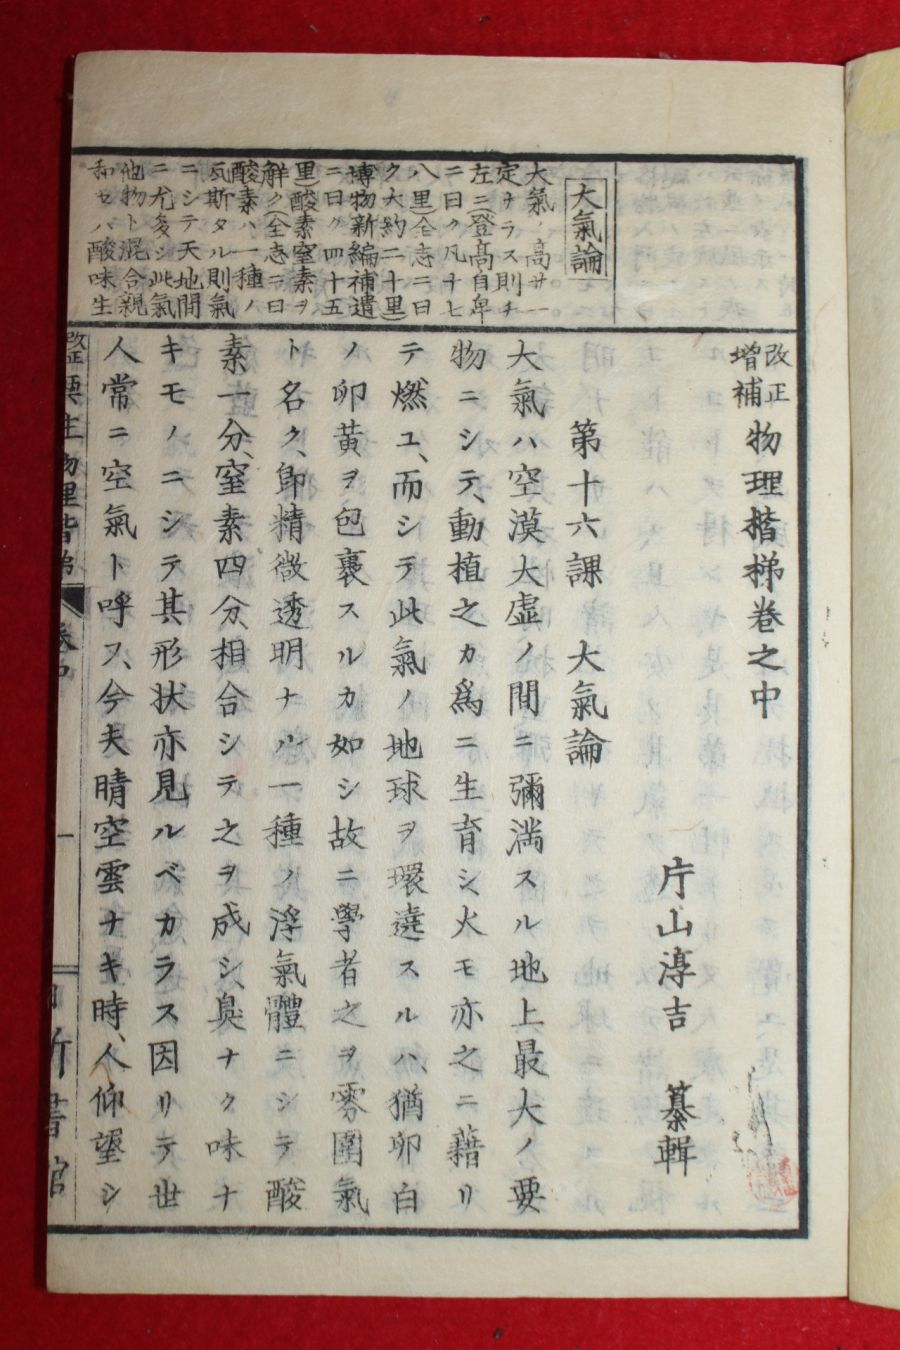 改正
增補
物理楷梯卷之中
片山淳吉 纂輯
第十六課 大氣論
大氣ハ空漠大虛ノ間ニ彌滿スル地上最大ノ要
物ニシテ、動植之カ爲ニ生育シ、火モ亦之ニ藉リ
テ燃ユ、而シテ此氣ノ地球ヲ環遶スルハ、猶卵白
ノ卵黄ヲ包裹スルカ如シ故ニ學者之ヲ雰圍氣
ト名ク、卽精微透明ナル一種ノ浮氣體ニシテ酸
素一分、窒素四分、相合シテ之ヲ成シ、臭ナク味ナ
キモノニシテ其形狀亦見ルベカラス因リテ世
人常ニ空氣ト呼フ、今夫晴空雲ナキ時、人仰望シ
大氣論
大氣ノ高サ一
定ナラス則チ
左ニ登高自卑
ニ曰ク凡十七
八里全志ニ曰
ク大約二十里
博物新編補遺
ニ曰ク四十五
里酸素窒素ヲ
解ク全志ニ曰
酸素ハ一種ノ
瓦斯タル則氣
ニシテ天地間
ニ尤多シ此氣
他物ト混合親
和セハ酸味生
改正
增生物理階梯
卷中
一
日新書館